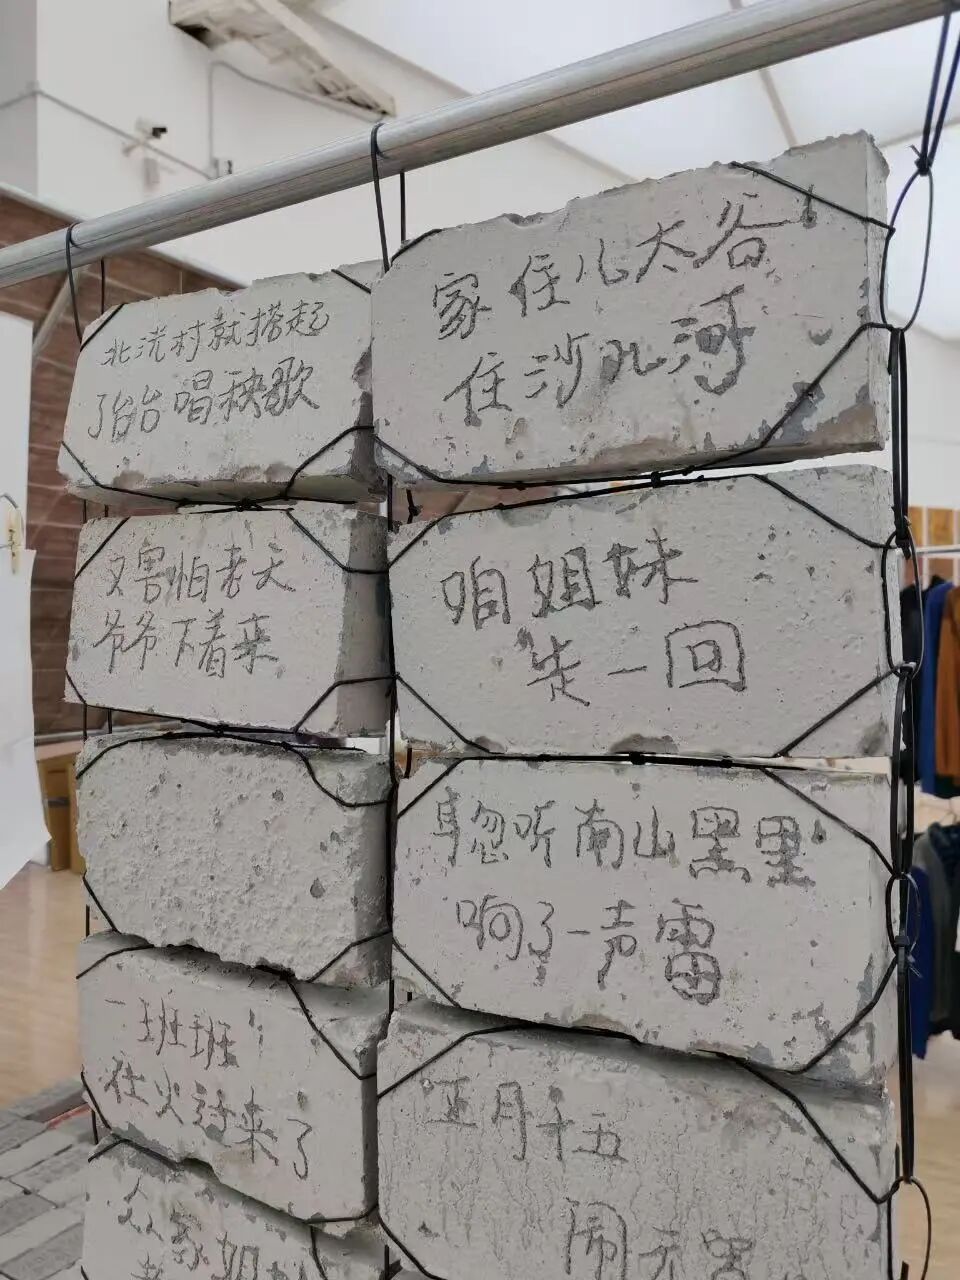 家住儿太谷
住沙儿河
咱姐妹
走一回
耳忽听南山黑里
响了一声雷
正月十五
闹元宵
北洸村就搭起
了台台唱秧歌
又害怕老天
爷爷下着来
一班班
社火过来了
众家姐